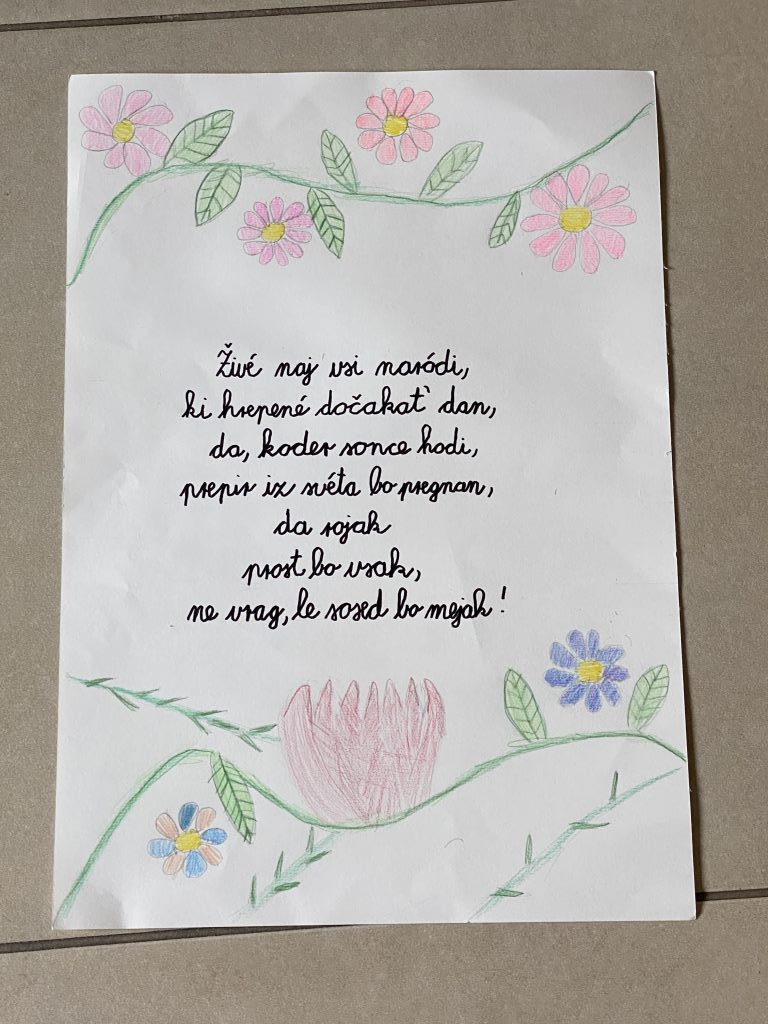 Živé naj vsi naródi,
ki hrepené dočakat' dan,
da, koder sonce hodi,
prepir iz svéta bo pregnan,
da rojak
prost bo vsak,
ne vrag, le sosed bo mejak!